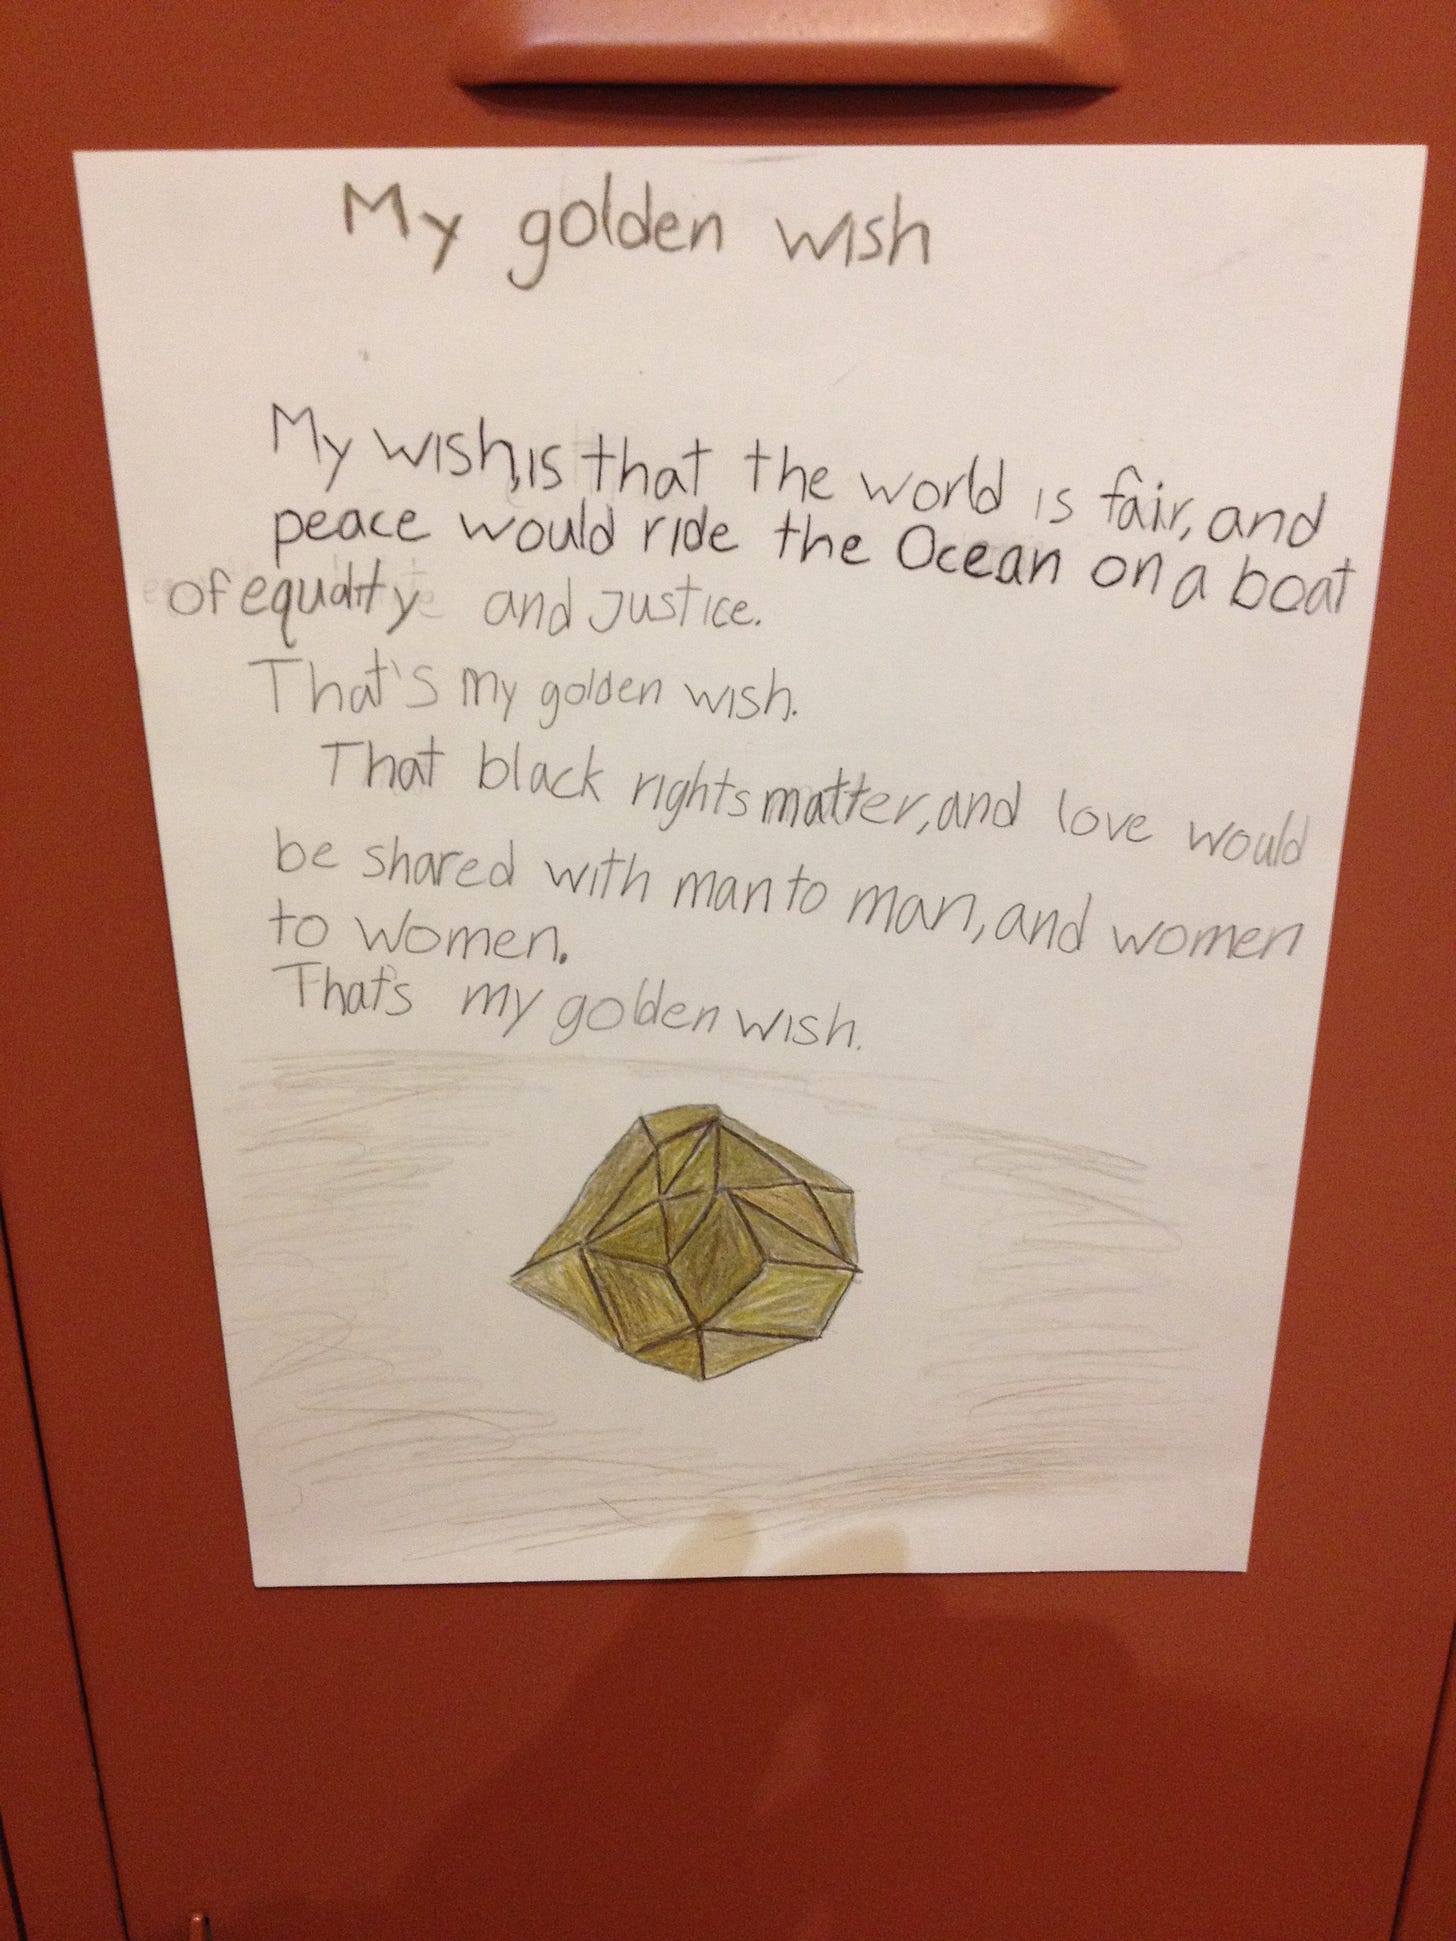 My golden wish
My wish, is that the world is fair, and
peace would ride the Ocean on a boat
of equality and justice.
That's my golden wish.
That black rights matter, and love would
be shared with man to man, and women
to women.
That's my golden wish.